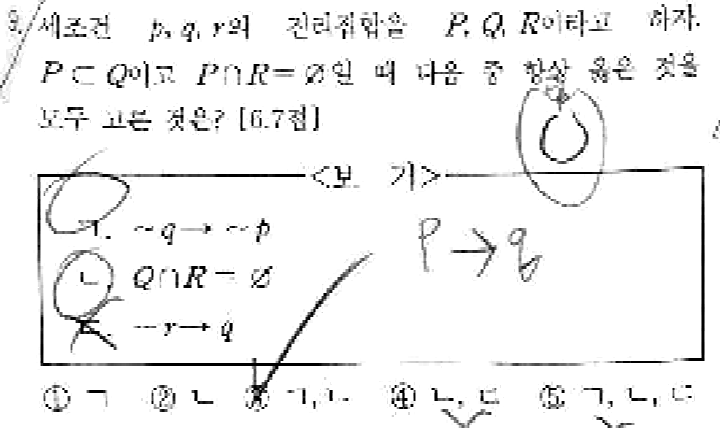 8. 세조건 p, q, r의 진리집합을 P, Q, R이라고 하자.
P⊂Q이고 P∩R=∅일 때 다음 중 항상 옳은 것을
모두 고른 것은? [6.7점]
<보 기>
ㄱ. ~q→ ~p
P→q
ㄴ. Q∩R=∅
ㄷ. ~r→ q
① ㄱ ② ㄴ ③ ㄱ,ㄴ ④ ㄴ,ㄷ ⑤ ㄱ,ㄴ,ㄷ